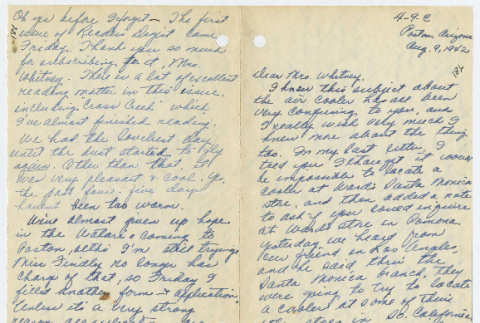 4-9-E
Poston, Arizona
Aug. 9, 1942
Dear Mrs. Whitney,
I know this subject about
the air cooler has all been
very confusing to you, and
I really wish very much I
knew more about the thing
too. In my last letter, I
told you I thought it would
be impossible to locate a
cooler at Ward's Santa Monica
store, and then added a note
to ask if you could inquire
at Wards store in Pomona.
Yesterday, we heard from
our friend in Los Angeles,
and he said the
Santa Monica branch, they
were going to try to locate
a cooler at some of their
other stores in So. California
Oh yes before I forget — The first
issue of Readers Digest came
Friday. Thank you so much
for subscribing for it, Mrs.
Whitney. There is a lot of excellent
reading matter in this issue
including "Cross Creek" which
I've almost finished reading.
We had the loveliest day
until the dust started to fly
again. Other than that it
was very pleasant & cool. For
the past four-five days
hasn't been too warm.
We've almost given up hope
in the Watari's coming to
Poston, altho I'm still trying.
Miss Findley no longer has
charge of that, so Friday I
filed another form & application.
Unless it's a very strong